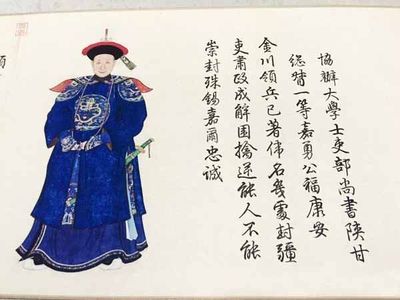 協辦大學士吏部尚書陝甘
總督一等嘉勇公福康安
金川領兵已著偉名幾處封疆
吏肅政成解困擒逆能人不能
崇封殊錫嘉爾忠誠